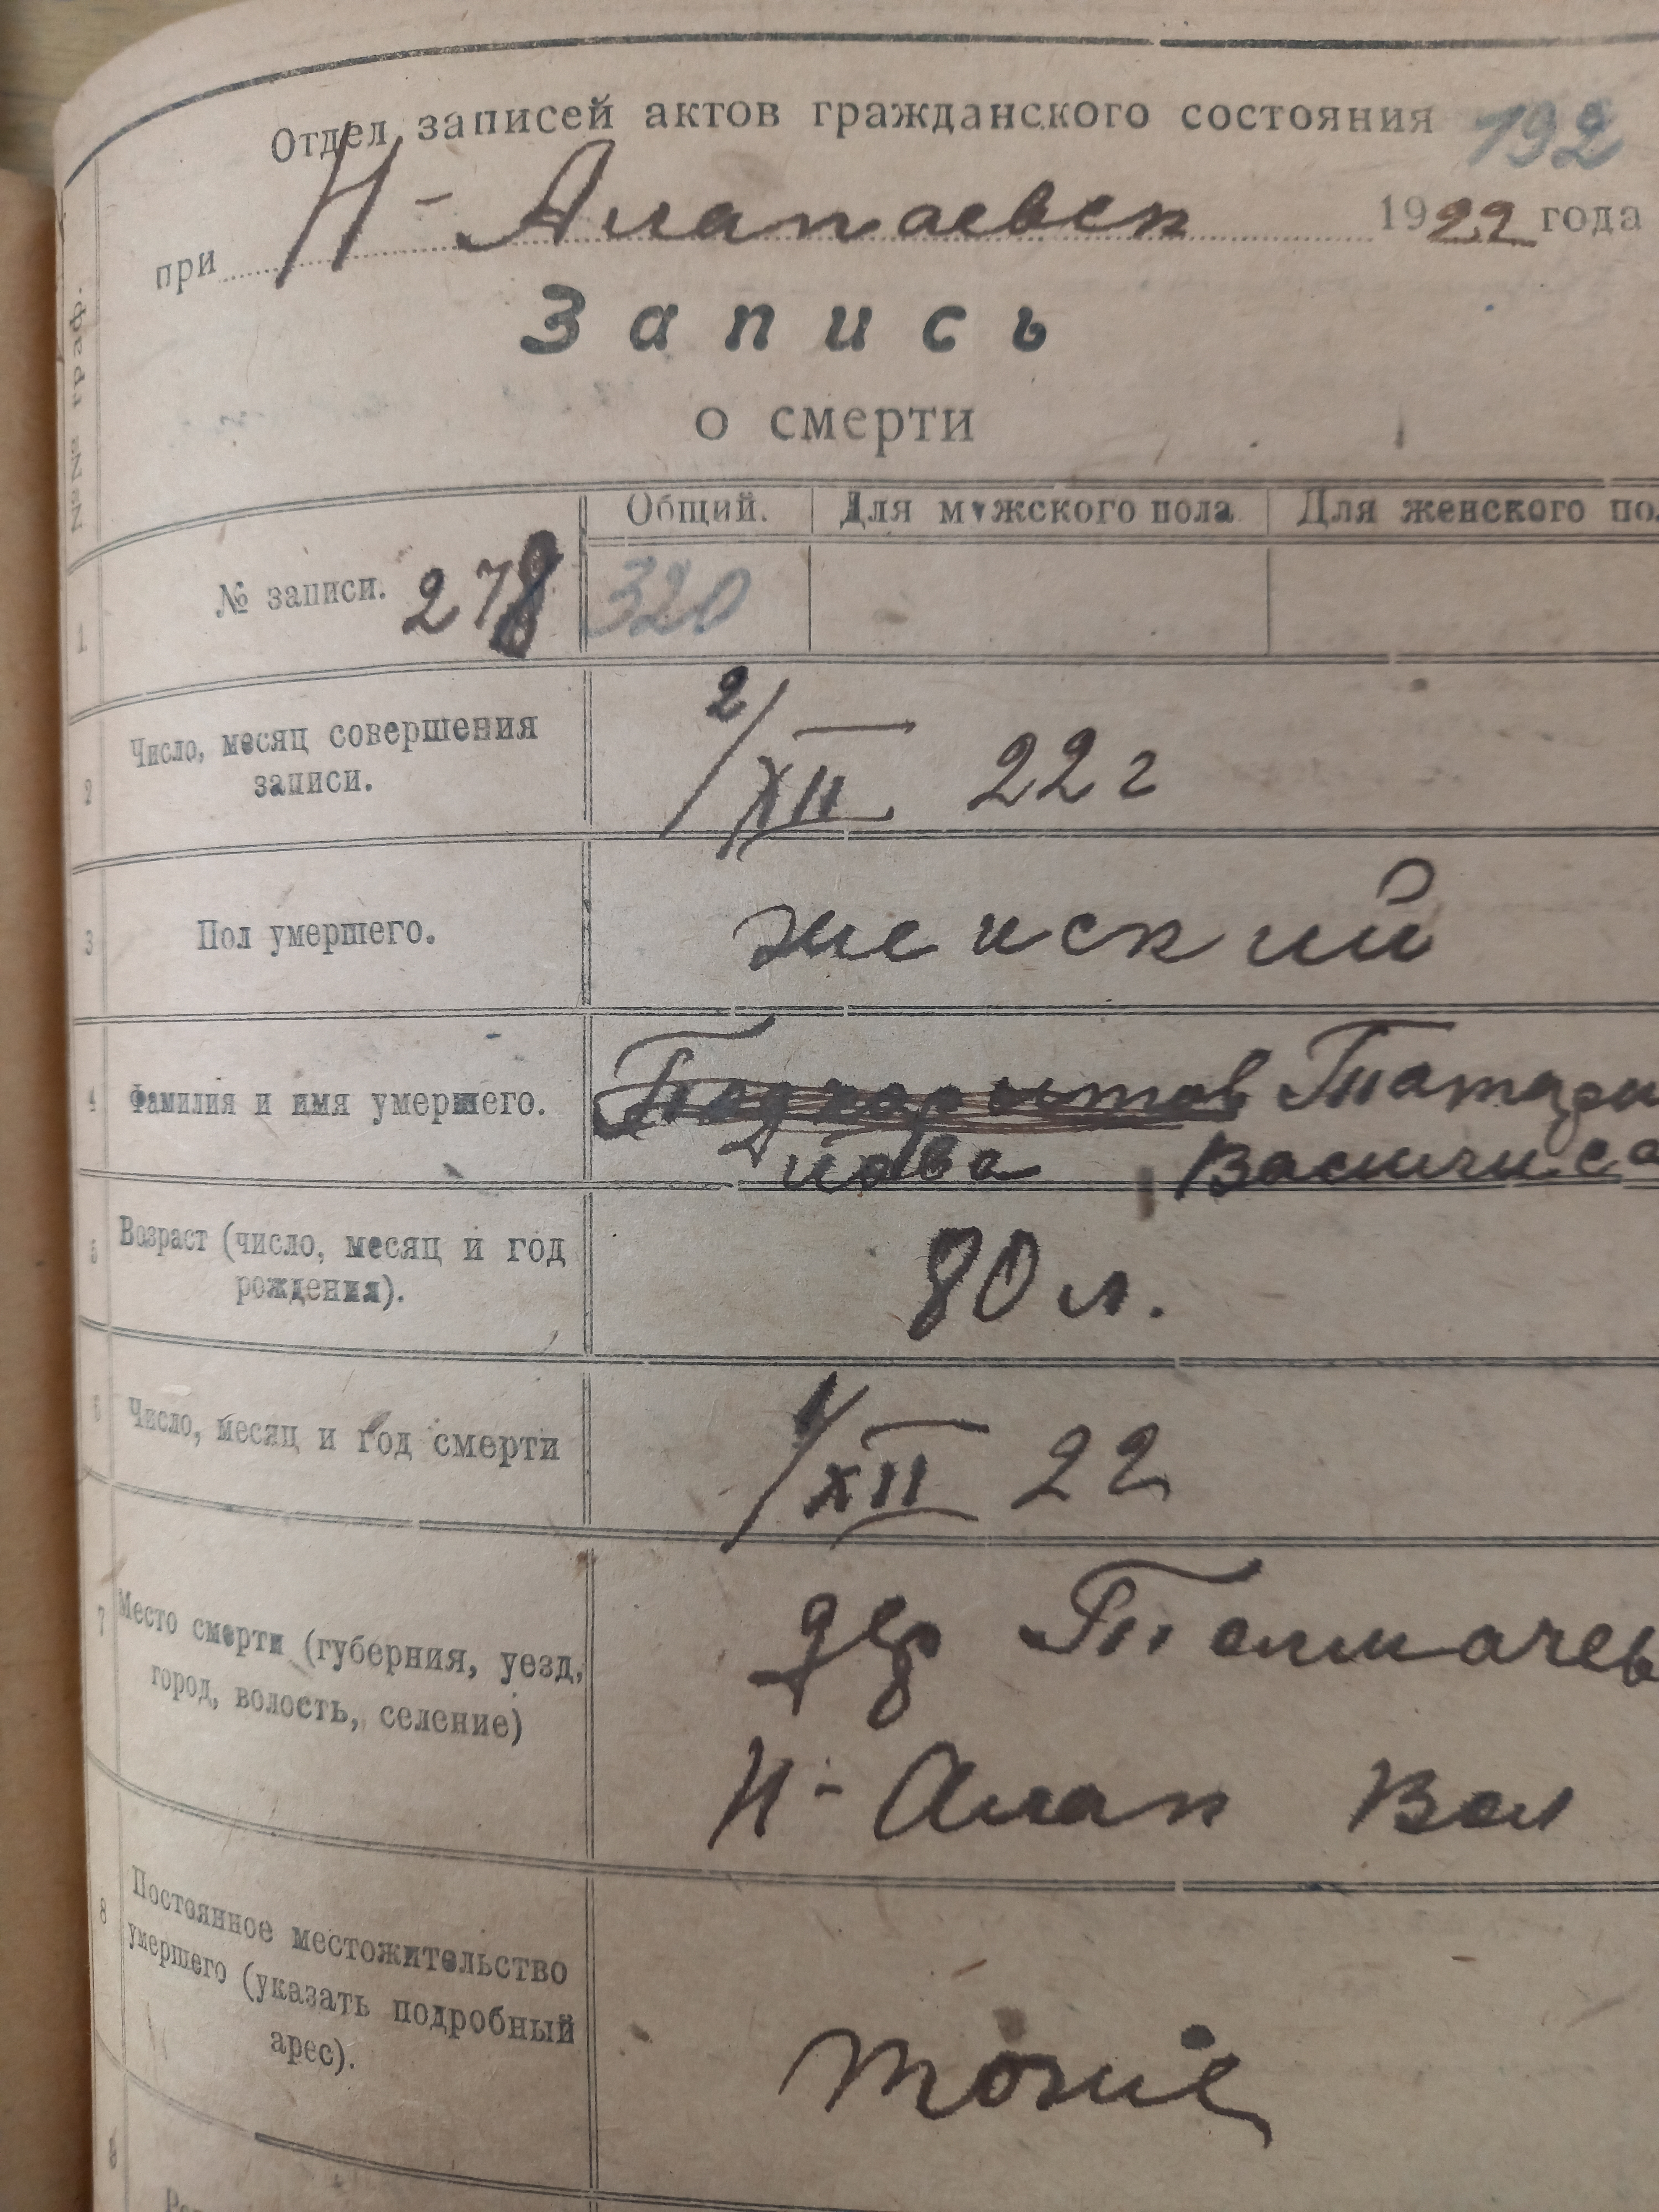 Отдел записей актов гражданского состояния 192
при Н-Алапаевск 1922 года
Запись
о смерти
Общий. Для мужского пола Для женского по
1 № записи. 278 320
2 Число, месяц совершения
записи.
2/XII 22 г
3 Пол умершего. женский
4 Фамилия и имя умершего.
Татари
нова Васичиса
5 Возраст (число, месяц и год
рождения).
80 л.
6 Число, месяц и год смерти
1/XII 22
7 Место смерти (губерния, уезд,
город, волость, селение)
дер Толмачев
Н-Алап Вол
8 Постоянное местожительство
умершего (указать подробный
арес).
тоже